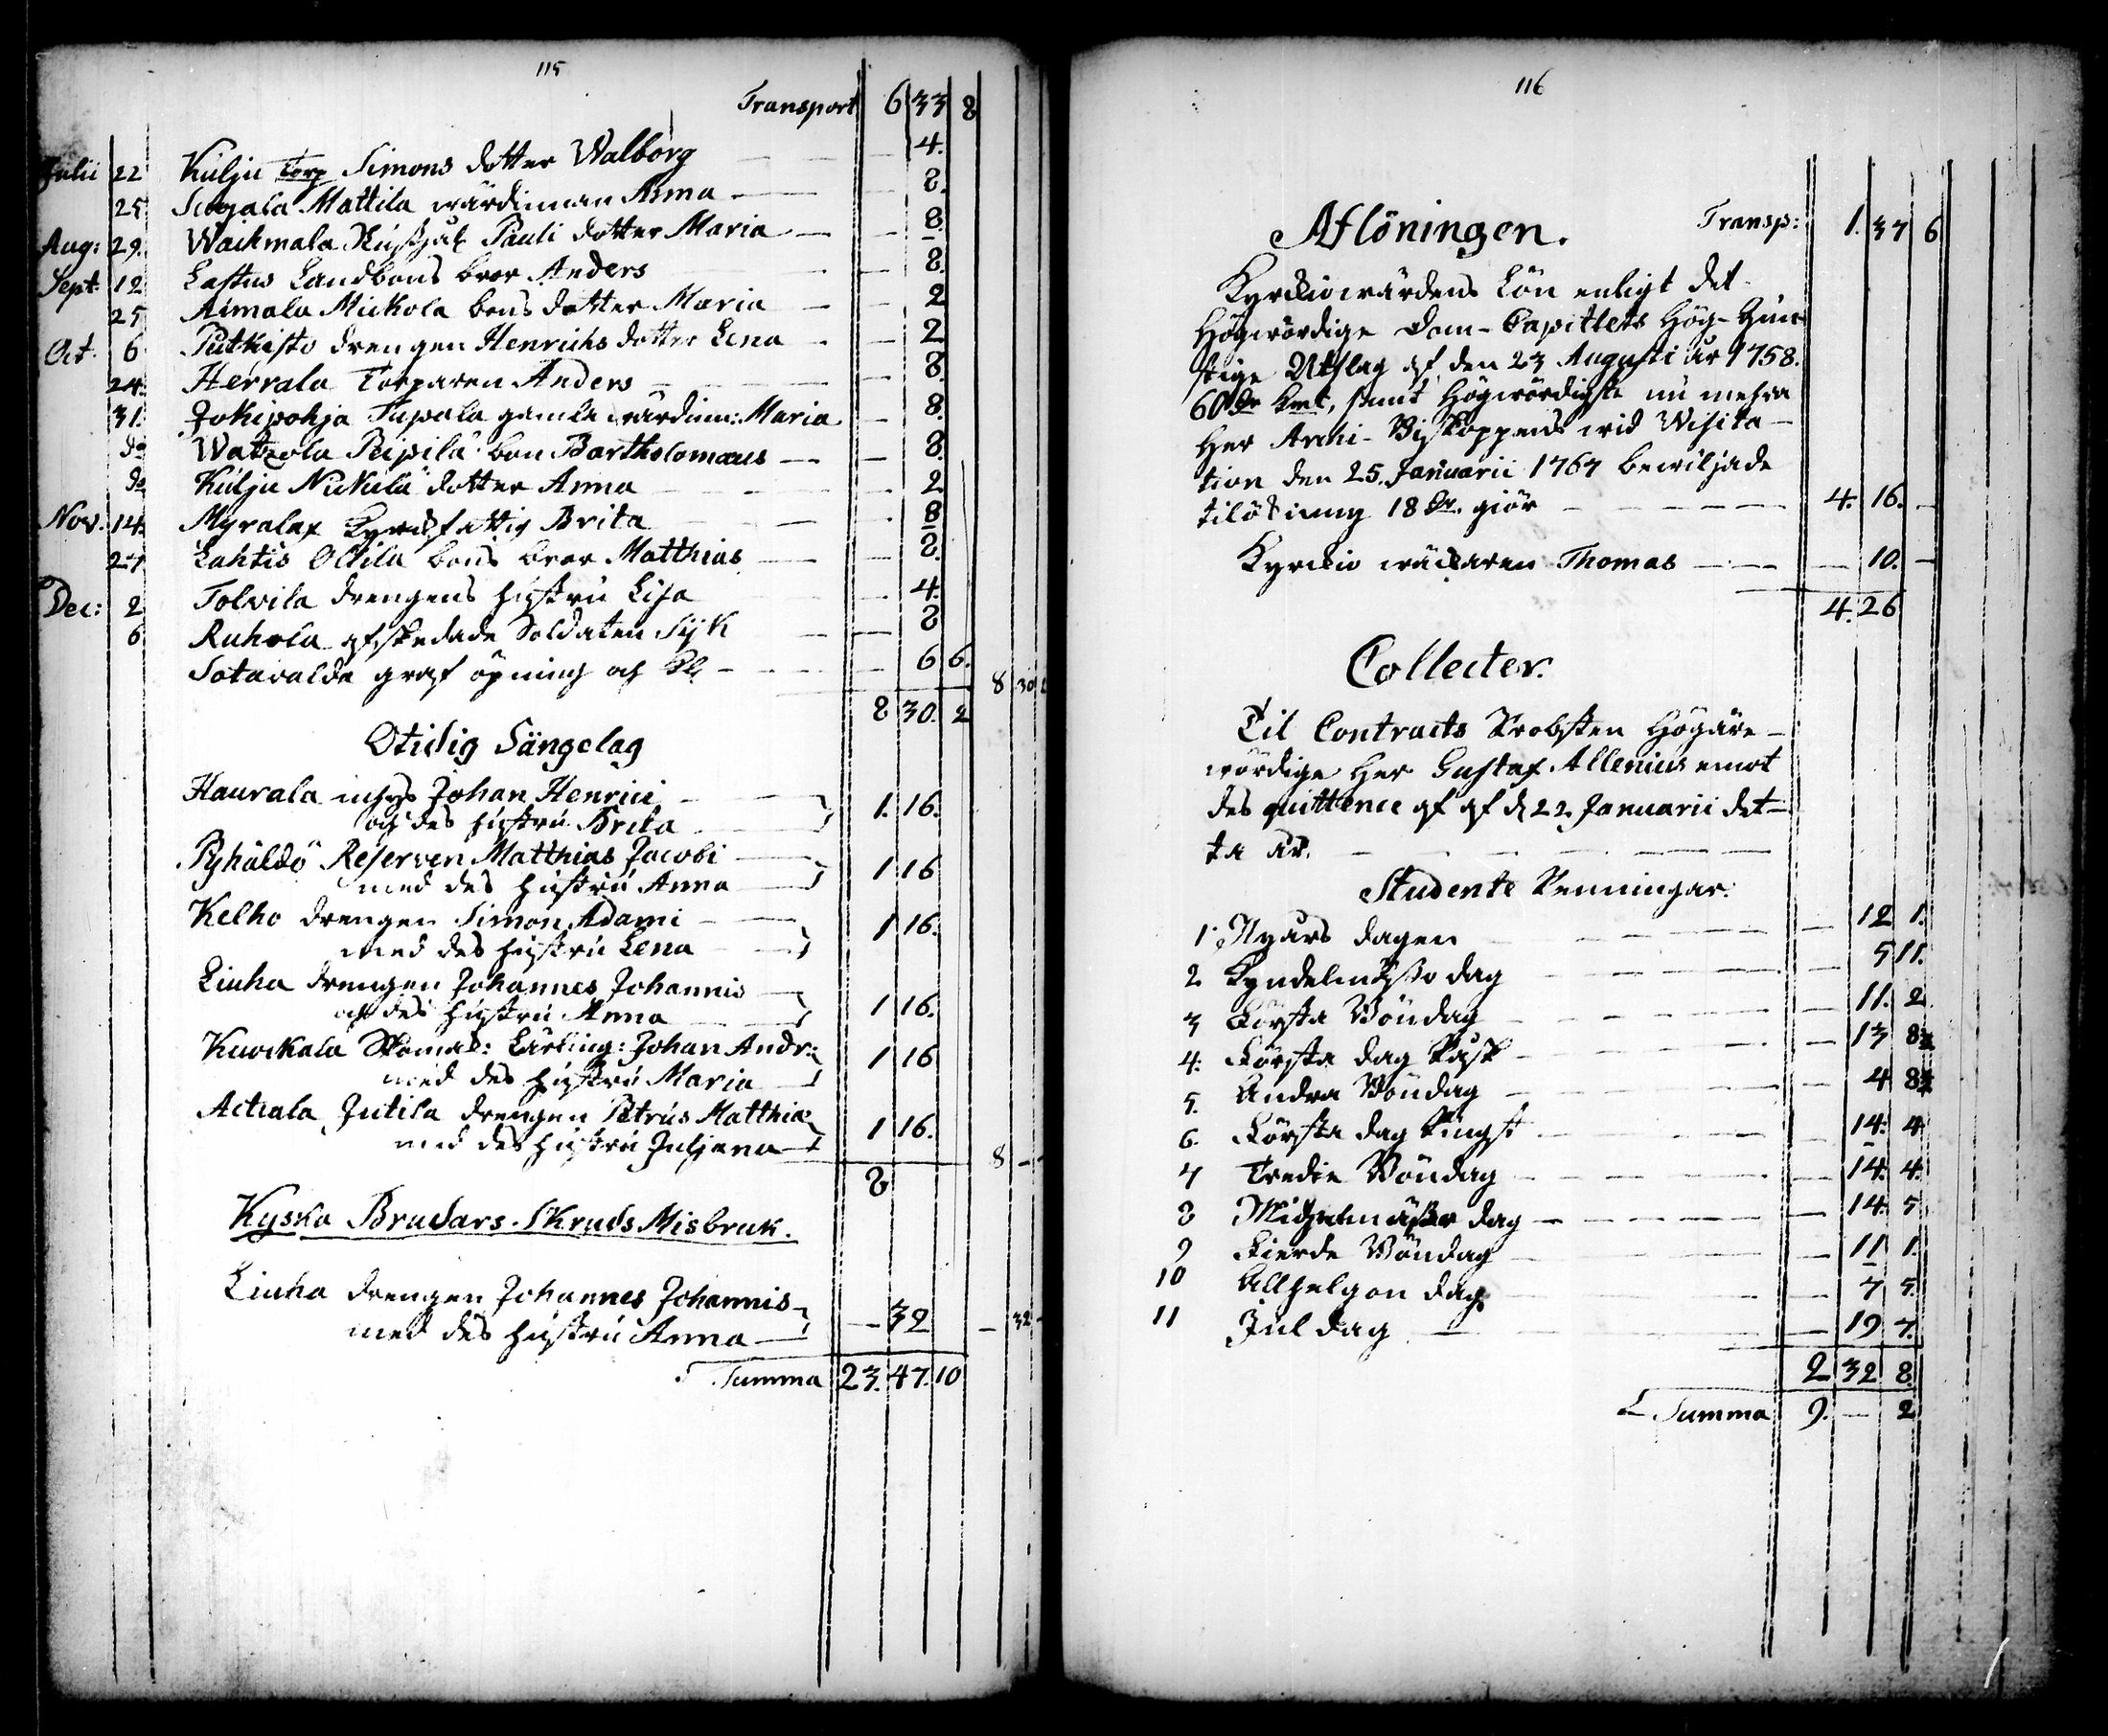 115
Transport 6 33 8
Julii 22 Kulju Torp Simons dotter Walborg 4.
25 Mattila wärdinnan Anna 8.
Aug: 29. Pauli dotter Maria 8.
Sept. 12 Lastus Landbons bror Anders 8.
25 Aimala Mickola bons dotter Maria 2
Oct. 6 Putkisto drengen Henrichs dotter Lena 2
24. Herrala Torparen Anders 8.
31. Jokipohja Tupala gamla wärdin: Maria 8.
do Peipilä bon Bartholomæus 8.
do Kulju Nickulä dotter Anna 2
Nov. 14. fattig Brita 8
27 Lahtis Ollila bons bror Matthias 8.
Dec: 2 Tolvila drengens hustru Lisa 4.
6 Ruhola afskedade Soldaten Sijk 8
Sotavalda graf öpning och 6 6. 8 30 2
8 30. 2
Otidig Sängelag
Haurala inhys Johan Henrici
och des hustru Brita 1. 16.
Pyhäldö Reserven Matthias Jacobi
med des hustru Anna 1 16
Kelho drengen Simon Adami
med des hustru Lena 1 16.
Liuha drengen Johannes Johannis
och des hustru Anna 1 16.
Kuockala Skomak: Lärling: Johan Andr:
med des hustru Maria 1 16
Actiala Jutila drengen Petrus Matthiæ
med des hustru Juljana 1 16. 8 - -
8
Kyska Brudars Skruds Misbruk.
Liuha drengen Johannes Johannis
med des hustru Anna — 32 — 32 -
Summa 23. 47. 10
116
Aflöningen. Transp: 1. 37 6
Kyrckiowärdens Lön enligt det
Högwördige Dom-Capitlets Hög-Gun-
stige Utslag af den 23 Augusti år 1758.
60 Dr Kmt, samt Högwördigste nu mehra
Her Archi-Biskoppens wid Wisita-
tion den 25. Januarii 1767 bewiljade
tilökning 18 Dr. giör 4. 16. -
Kyrckio wäckaren Thomas — 10. -
4. 26
Collecter.
Til Contracts Probsten Högäre-
wördige Her Gustaf Allenius emot
des quittence af af d 22 Januarii det-
ta år.
Studente Penningar.
1. Nyårs dagen 12 1.
2 Kyndelmässo dag 5 11.
3 Första Böndag 11. 2
4. Första dag Påsk 13 8½
5. Andra Böndag 4 8½
6. Första dag Pingst 14. 4
7 Tredie Böndag 14. 4.
8 Michelmässo dag 14. 5
9 Fierde Böndag 11 1.
10 Allhelgon dag 7 5.
11 Jul dag 19 7.
2 32 8.
Summa 9. — 2